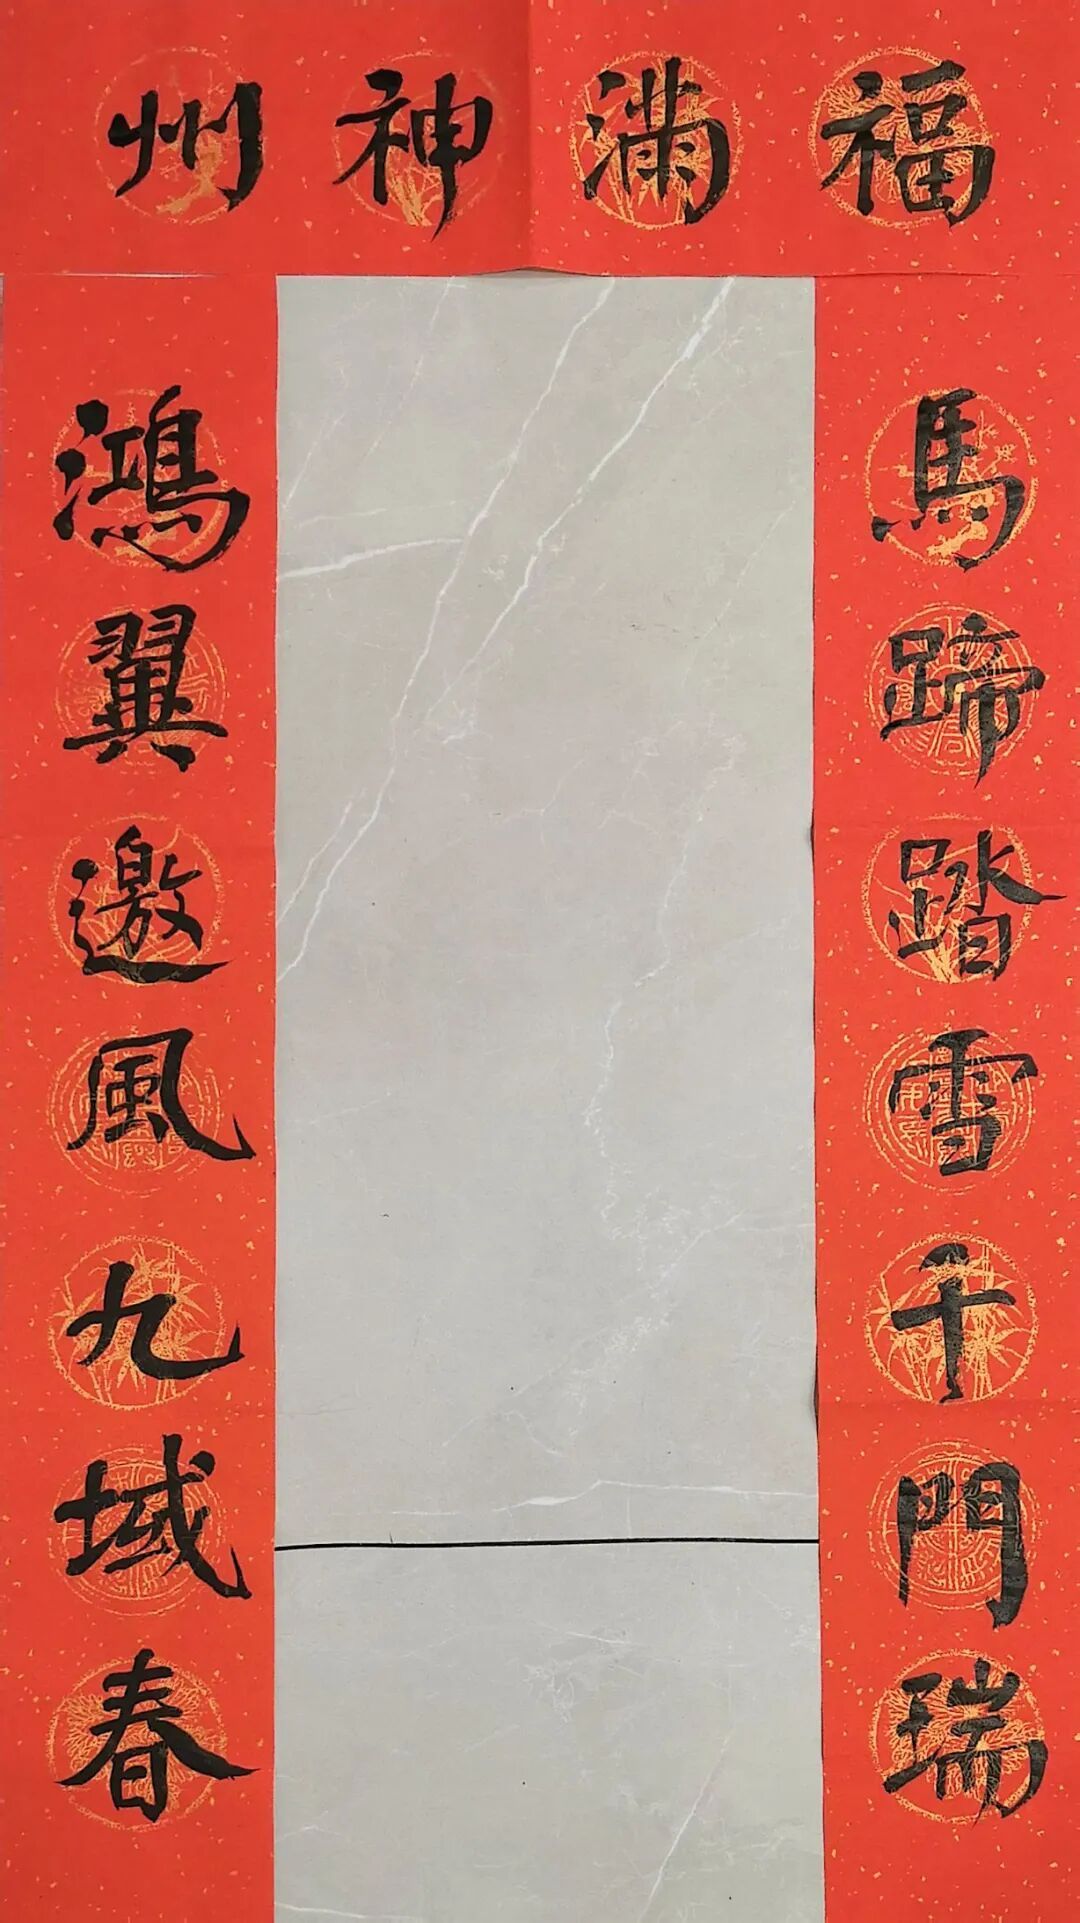 福滿神州
馬蹄踏雪千門瑞
鴻翼邀風九域春